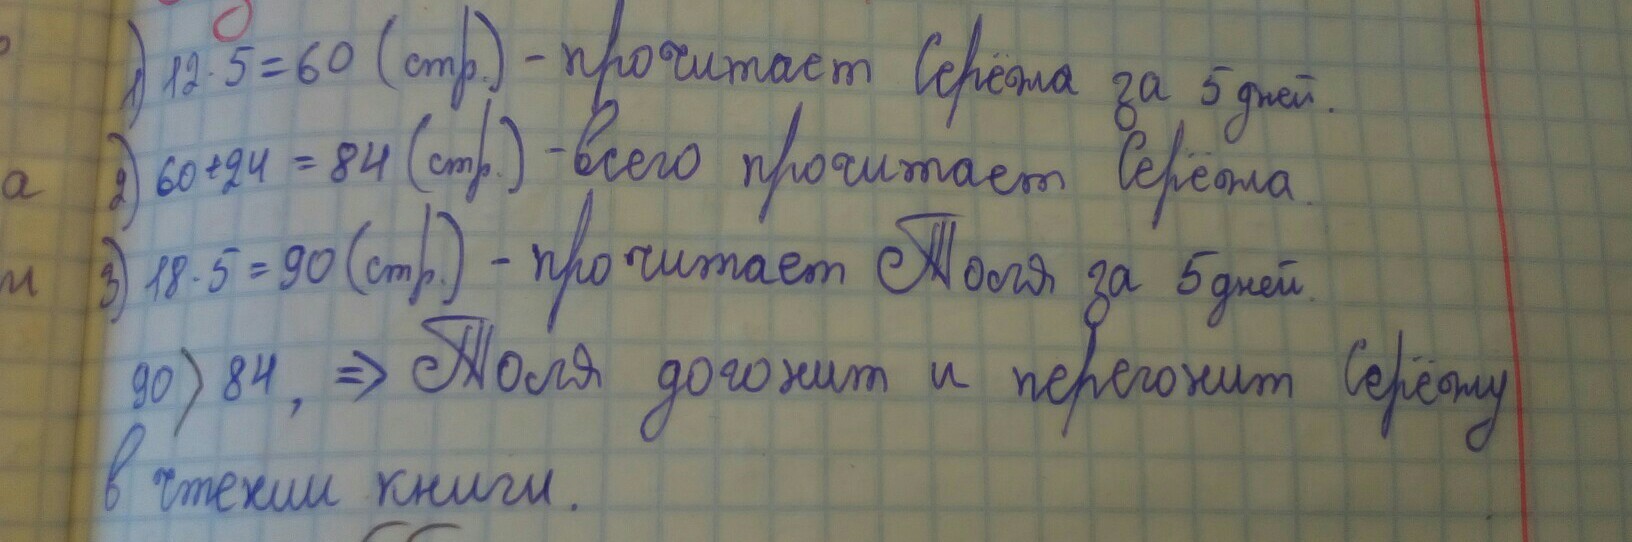 1) 12·5=60 (стр.) - прочитает Серёжа за 5 дней.
2) 60+24=84 (стр.) - всего прочитает Серёжа.
3) 18·5=90 (стр.) - прочитает Толя за 5 дней.
90>84, => Толя догонит и перегонит Серёжу
в чтении книги.